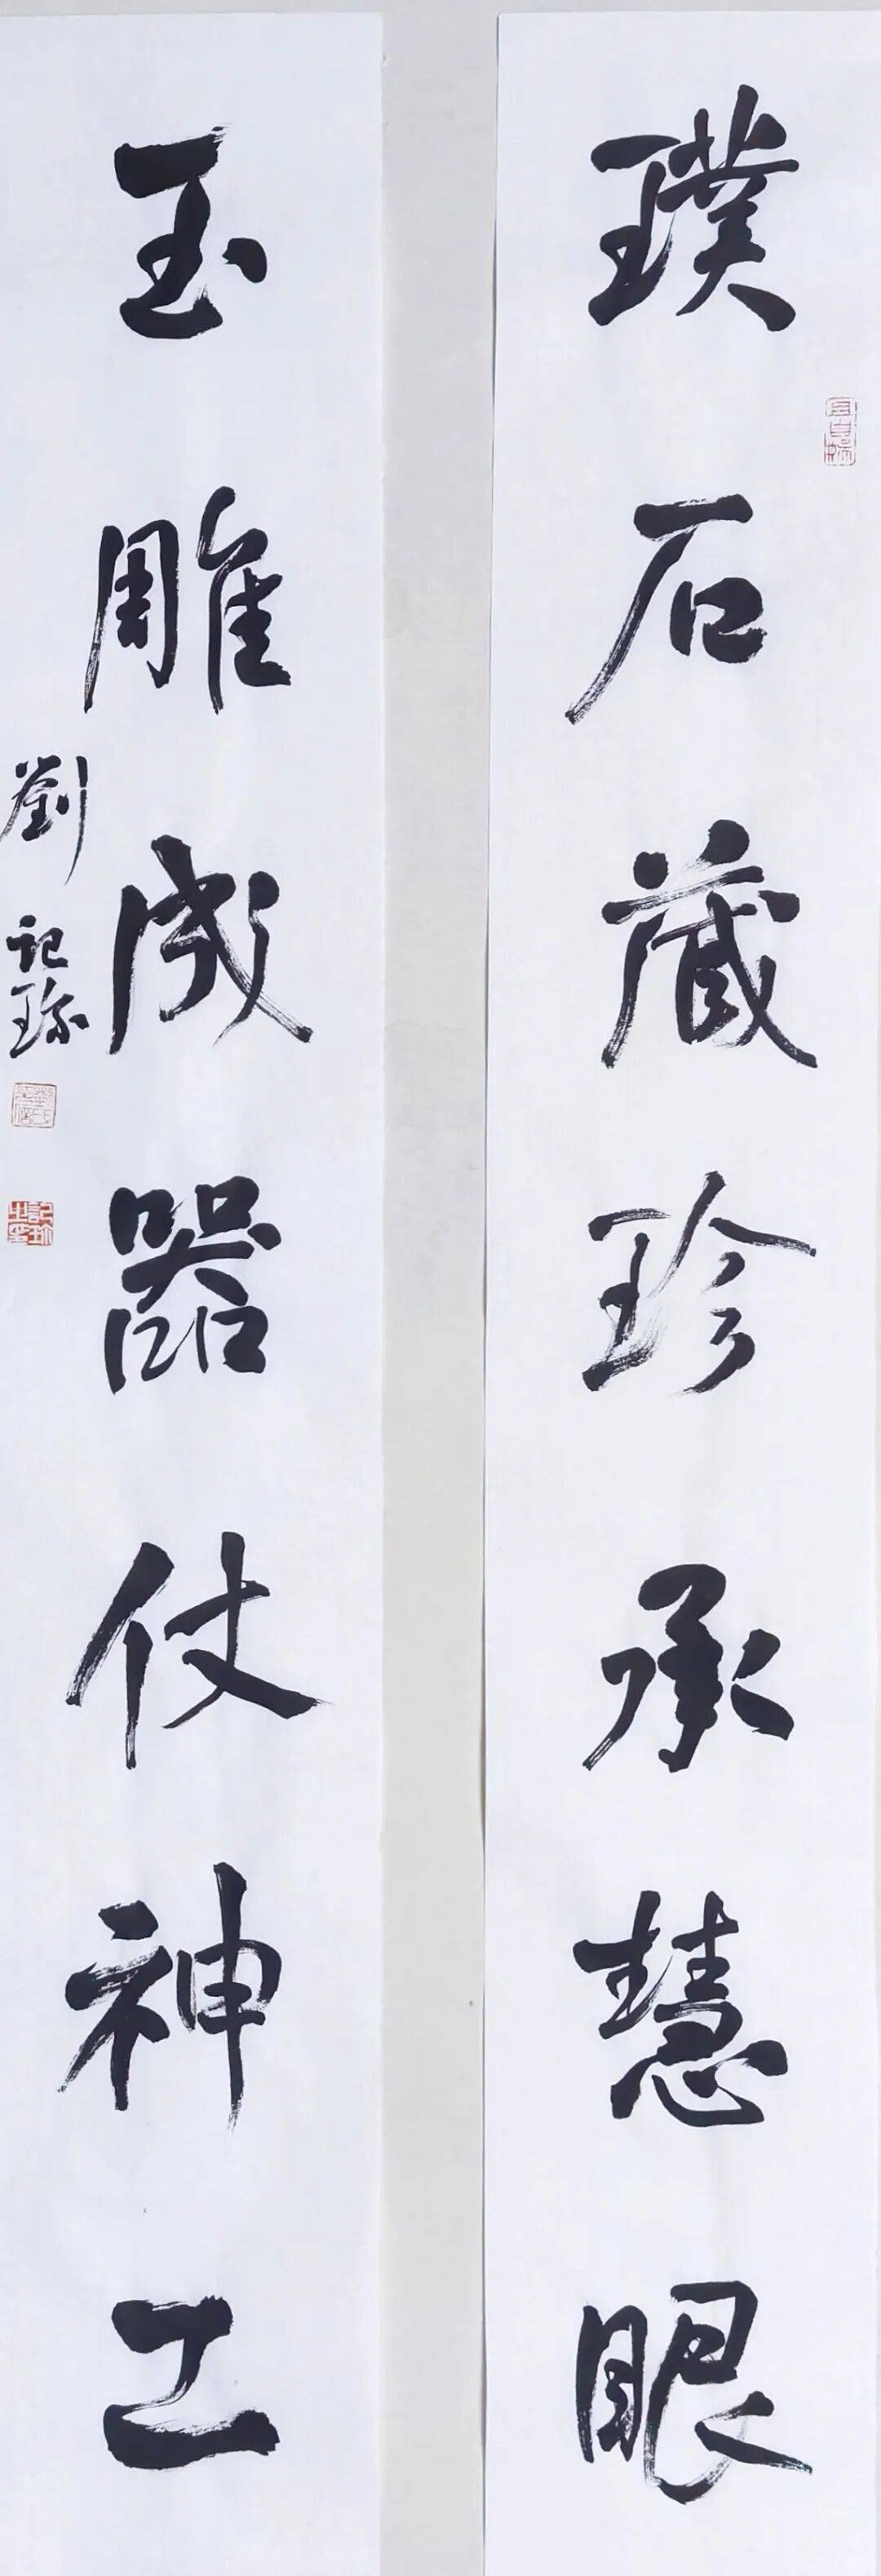 璞石藏珍承慧眼
玉雕成器仗神工
劉記珎